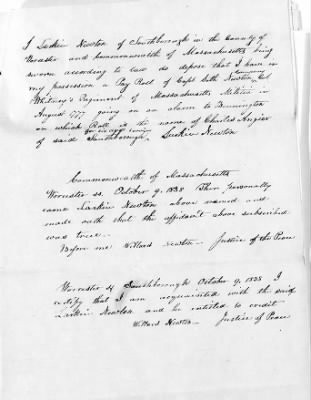 I Luskin Newton of Southborough in the County of
Worcester and Commonwealth of Massachusetts being
sworn according to law do depose that I have in
my possession a Pay Roll of Capt. Seth Newton, Col.
Whitney's Regiment of Massachusetts Militia in
August 1777 going on an alarm to Bennington
on which Roll is the name of Charles Angier
of said Southborough. Luskin Newton
Commonwealth of Massachusetts
Worcester ss. October 9, 1838 Then personally
came Larkin Newton above named and
made oath that the affidavit above subscribed
was true.
Before me Willard Newton Justice of the Peace
Worcester ss Southborough October 9, 1838 I
certify that I am acquainted with the said
Larkin Newton and he entitled to credit
Willard Newton Justice of Peace